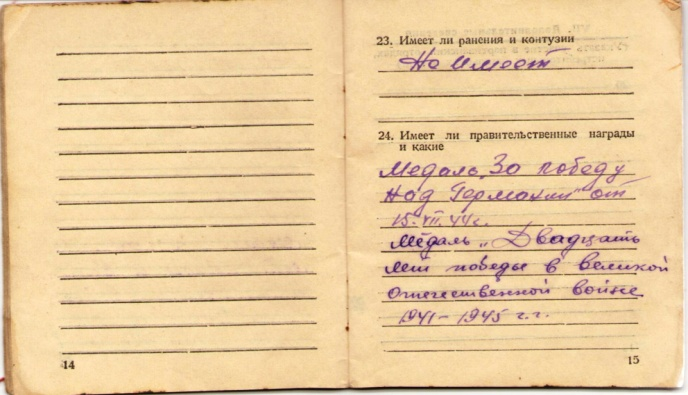 23. Имеет ли ранения и контузии
Не имеет
24. Имеет ли правительственные награды
и какие
Медаль „За победу
над Германии" от
15-VII.44г.
Медаль „Двадцать
лет победы в великой
отечественной войне
1941-1945 г.г.
14
15